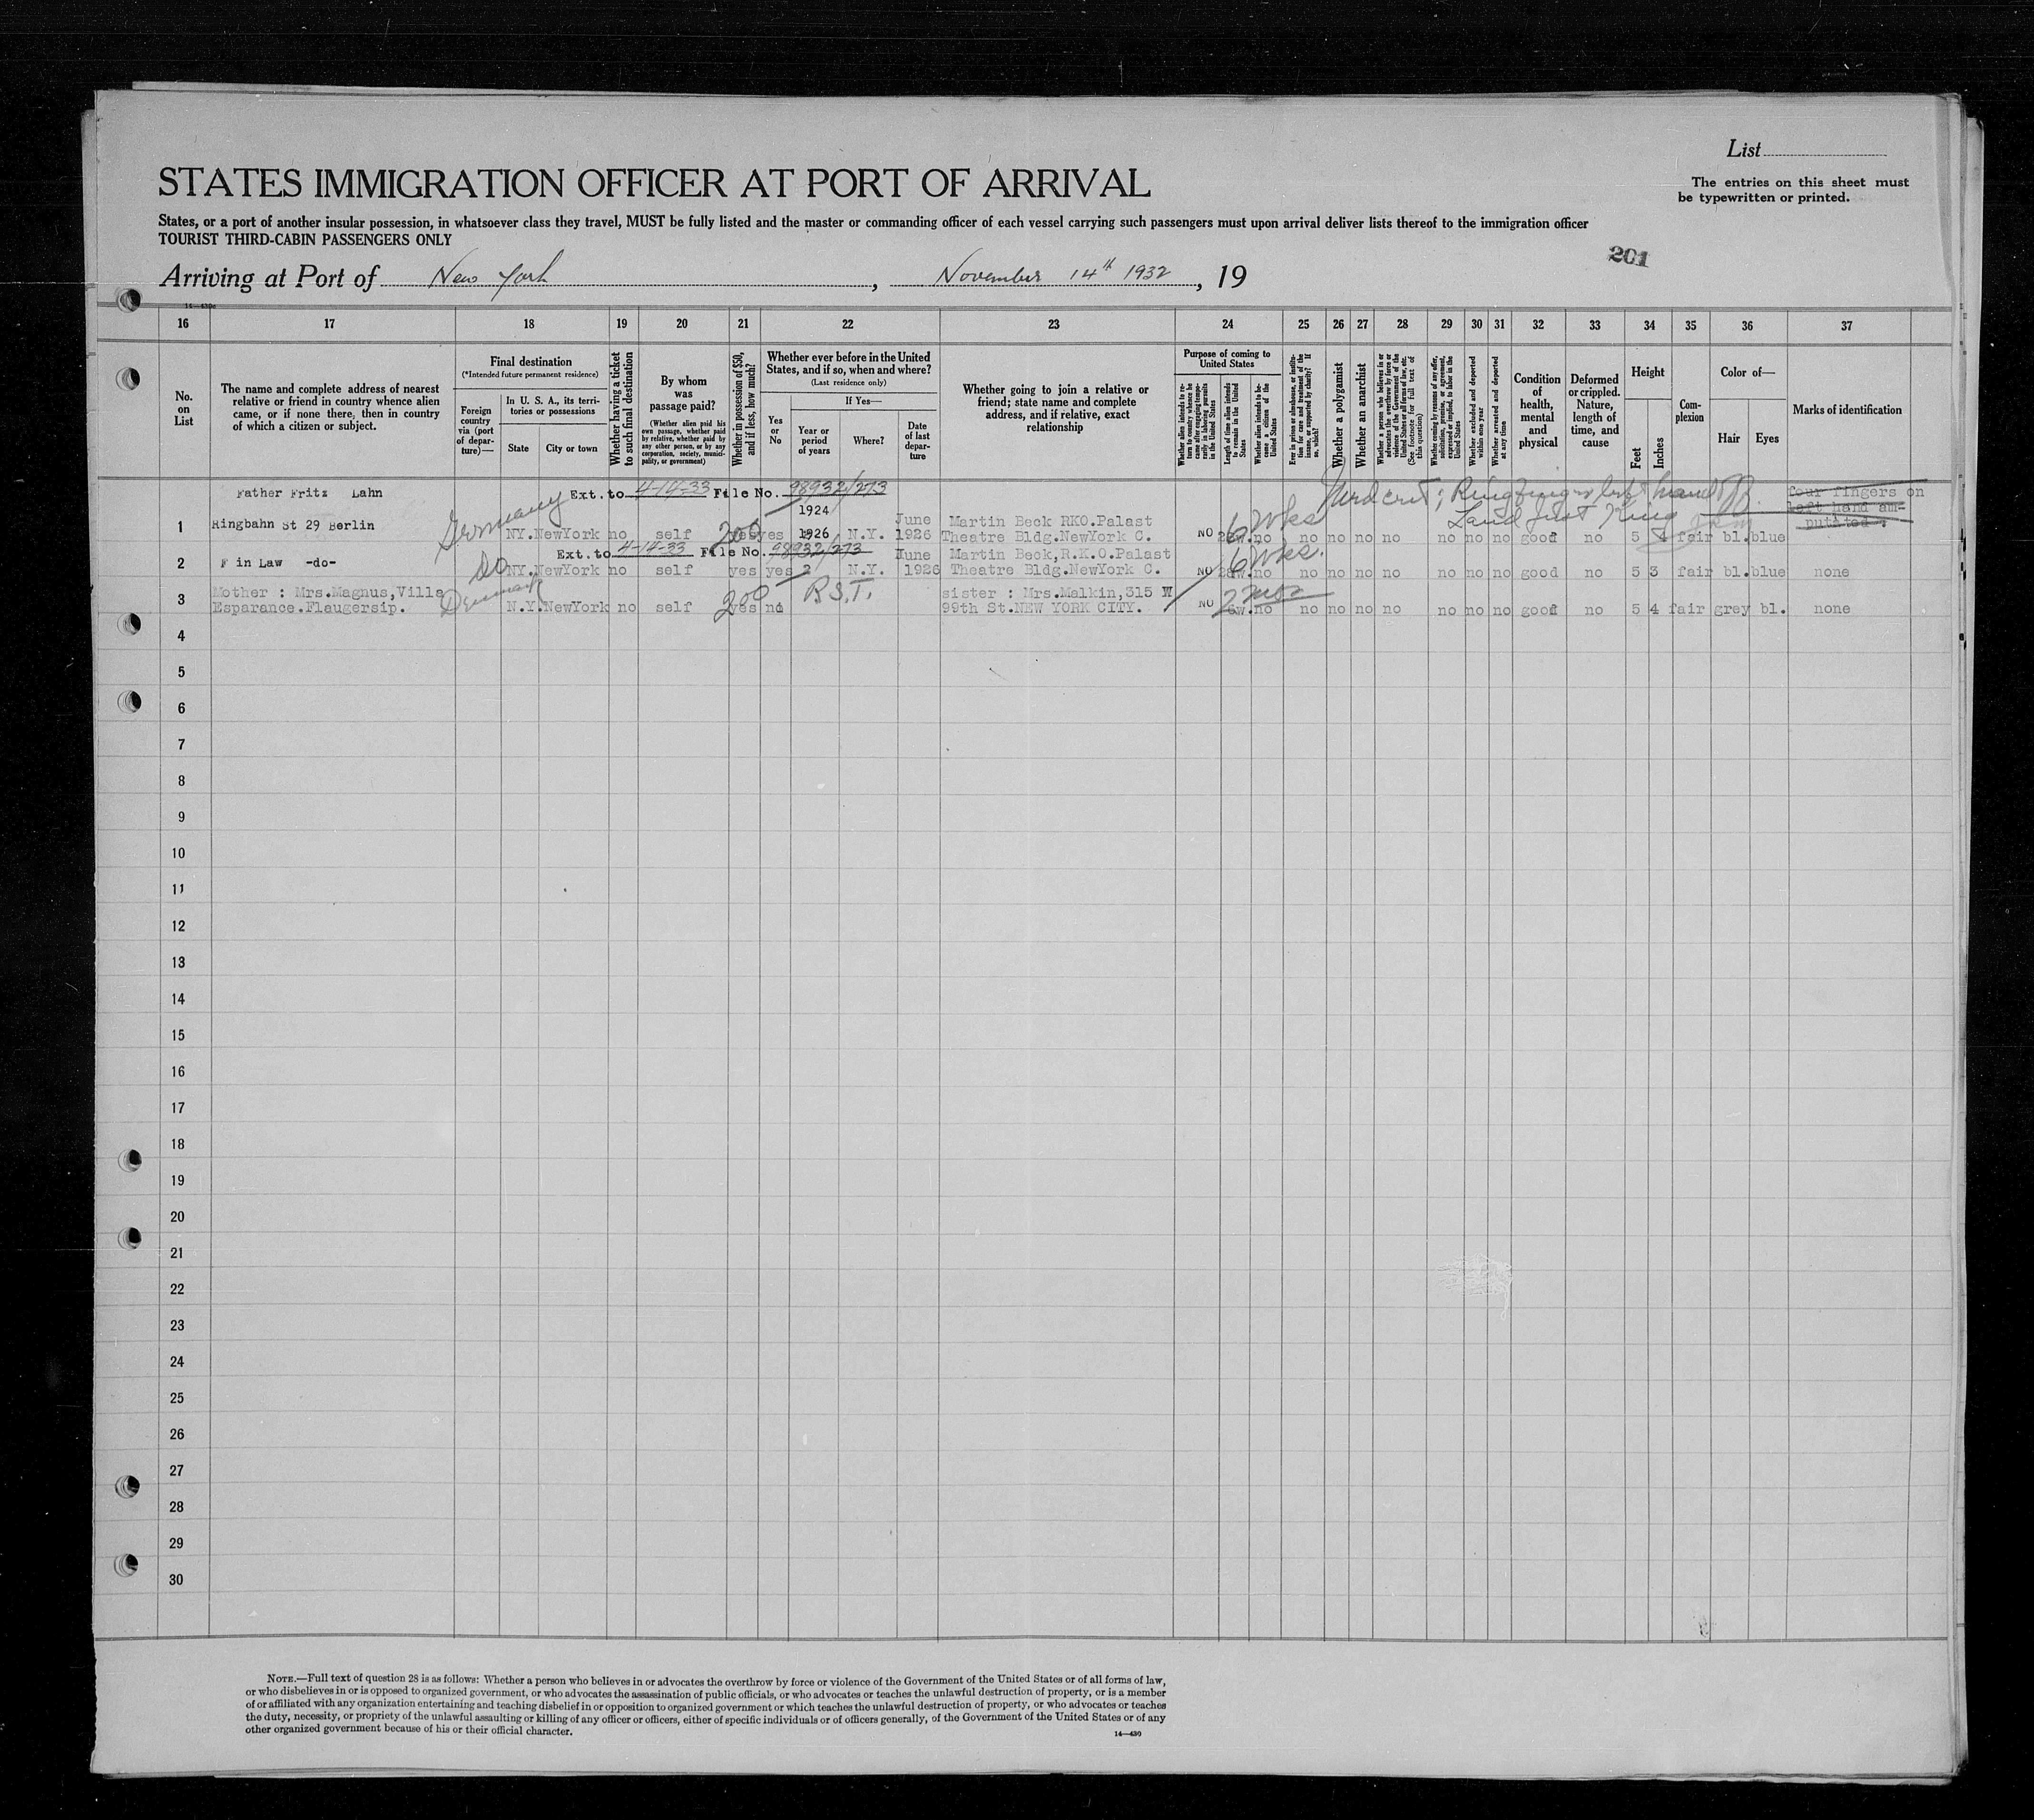 List
STATES IMMIGRATION OFFICER AT PORT OF ARRIVAL
The entries on this sheet must
be typewritten or printed.
States, or a port of another insular possession, in whatsoever class they travel, MUST be fully listed and the master or commanding officer of each vessel carrying such passengers must upon arrival deliver lists thereof to the immigration officer
TOURIST THIRD-CABIN PASSENGERS ONLY
201
Arriving at Port of New York, November 14th 1932, 19
14—430c
16 17 18 19 20 21 22 23 24 25 26 27 28 29 30 31 32 33 34 35 36 37
No.
on
List
The name and complete address of nearest
relative or friend in country whence alien
came, or if none there, then in country
of which a citizen or subject.
Final destination
(*Intended future permanent residence)
Foreign
country
via (port
of depar-
ture)—
In U. S. A., its terri-
tories or possessions
State
City or town
Whether having a ticket
to such final destination
By whom
was
passage paid?
(Whether alien paid his
own passage, whether paid
by relative, whether paid by
any other person, or by any
corporation, society, munici-
pality, or government)
Whether in possession of $50,
and if less, how much?
Whether ever before in the United
States, and if so, when and where?
(Last residence only)
Yes
or
No
If Yes—
Year or
period
of years
Where?
Date
of last
depar-
ture
Whether going to join a relative or
friend; state name and complete
address, and if relative, exact
relationship
Purpose of coming to
United States
Whether alien intends to re-
turn to country whence he
came after engaging tempo-
rarily in laboring pursuits
in the United States
Length of time alien intends
to remain in the United
States
Whether alien intends to be-
come a citizen of the
United States
Ever in prison or almshouse, or institu-
tion for care and treatment of the
insane, or supported by charity? If
so, which?
Whether a polygamist
Whether an anarchist
Whether a person who believes in or
advocates the overthrow by force or
violence of the Government of the
United States or all forms of law, etc.
(See footnote for full text of
this question)
Whether coming by reasons of any offer,
solicitation, promise, or agreement,
expressed or implied, to labor in the
United States
Whether excluded and deported
within one year
Whether arrested and deported
at any time
Condition
of
health,
mental
and
physical
Deformed
or crippled.
Nature,
length of
time, and
cause
Height
Feet
Inches
Com-
plexion
Color of—
Hair
Eyes
Marks of identification
Father Fritz Lahn Ext. to 4-14-33 File No. 98932/273 four fingers on
1924 left hand am-
1 Ringbahn St 29 Berlin Germany June Martin Beck RKO.Palast 6 Wks putated.
NY.NewYork no self 200 yes yes 1926 N.Y. 1926 Theatre Bldg.NewYork C. NO no no no no no no no no good no 5 4 fair bl.blue
Ext. to 4-14-33 File No. 98932/273 June Martin Beck,R.K.O.Palast 6 Wks.
2 F in Law -do- Do NY.NewYork no self yes yes 2 N.Y. 1926 Theatre Bldg.NewYork C. NO no no no no no no no no good no 5 3 fair bl.blue none
Mother : Mrs.Magnus,Villa Denmark 200 R.S.T. sister : Mrs.Malkin,315 W 2 mos
3 Esparance.Flaugersip. N.Y.NewYork no self yes no 99th St.NEW YORK CITY. NO no no no no no no no no good no 5 4 fair grey bl. none
4
5
6
7
8
9
10
11
12
13
14
15
16
17
18
19
20
21
22
23
24
25
26
27
28
29
30
NOTE.—Full text of question 28 is as follows: Whether a person who believes in or advocates the overthrow by force or violence of the Government of the United States or of all forms of law,
or who disbelieves in or is opposed to organized government, or who advocates the assassination of public officials, or who advocates or teaches the unlawful destruction of property, or is a member
of or affiliated with any organization entertaining and teaching disbelief in or opposition to organized government or which teaches the unlawful destruction of property, or who advocates or teaches
the duty, necessity, or propriety of the unlawful assaulting or killing of any officer or officers, either of specific individuals or of officers generally, of the Government of the United States or of any
other organized government because of his or their official character.
14—430